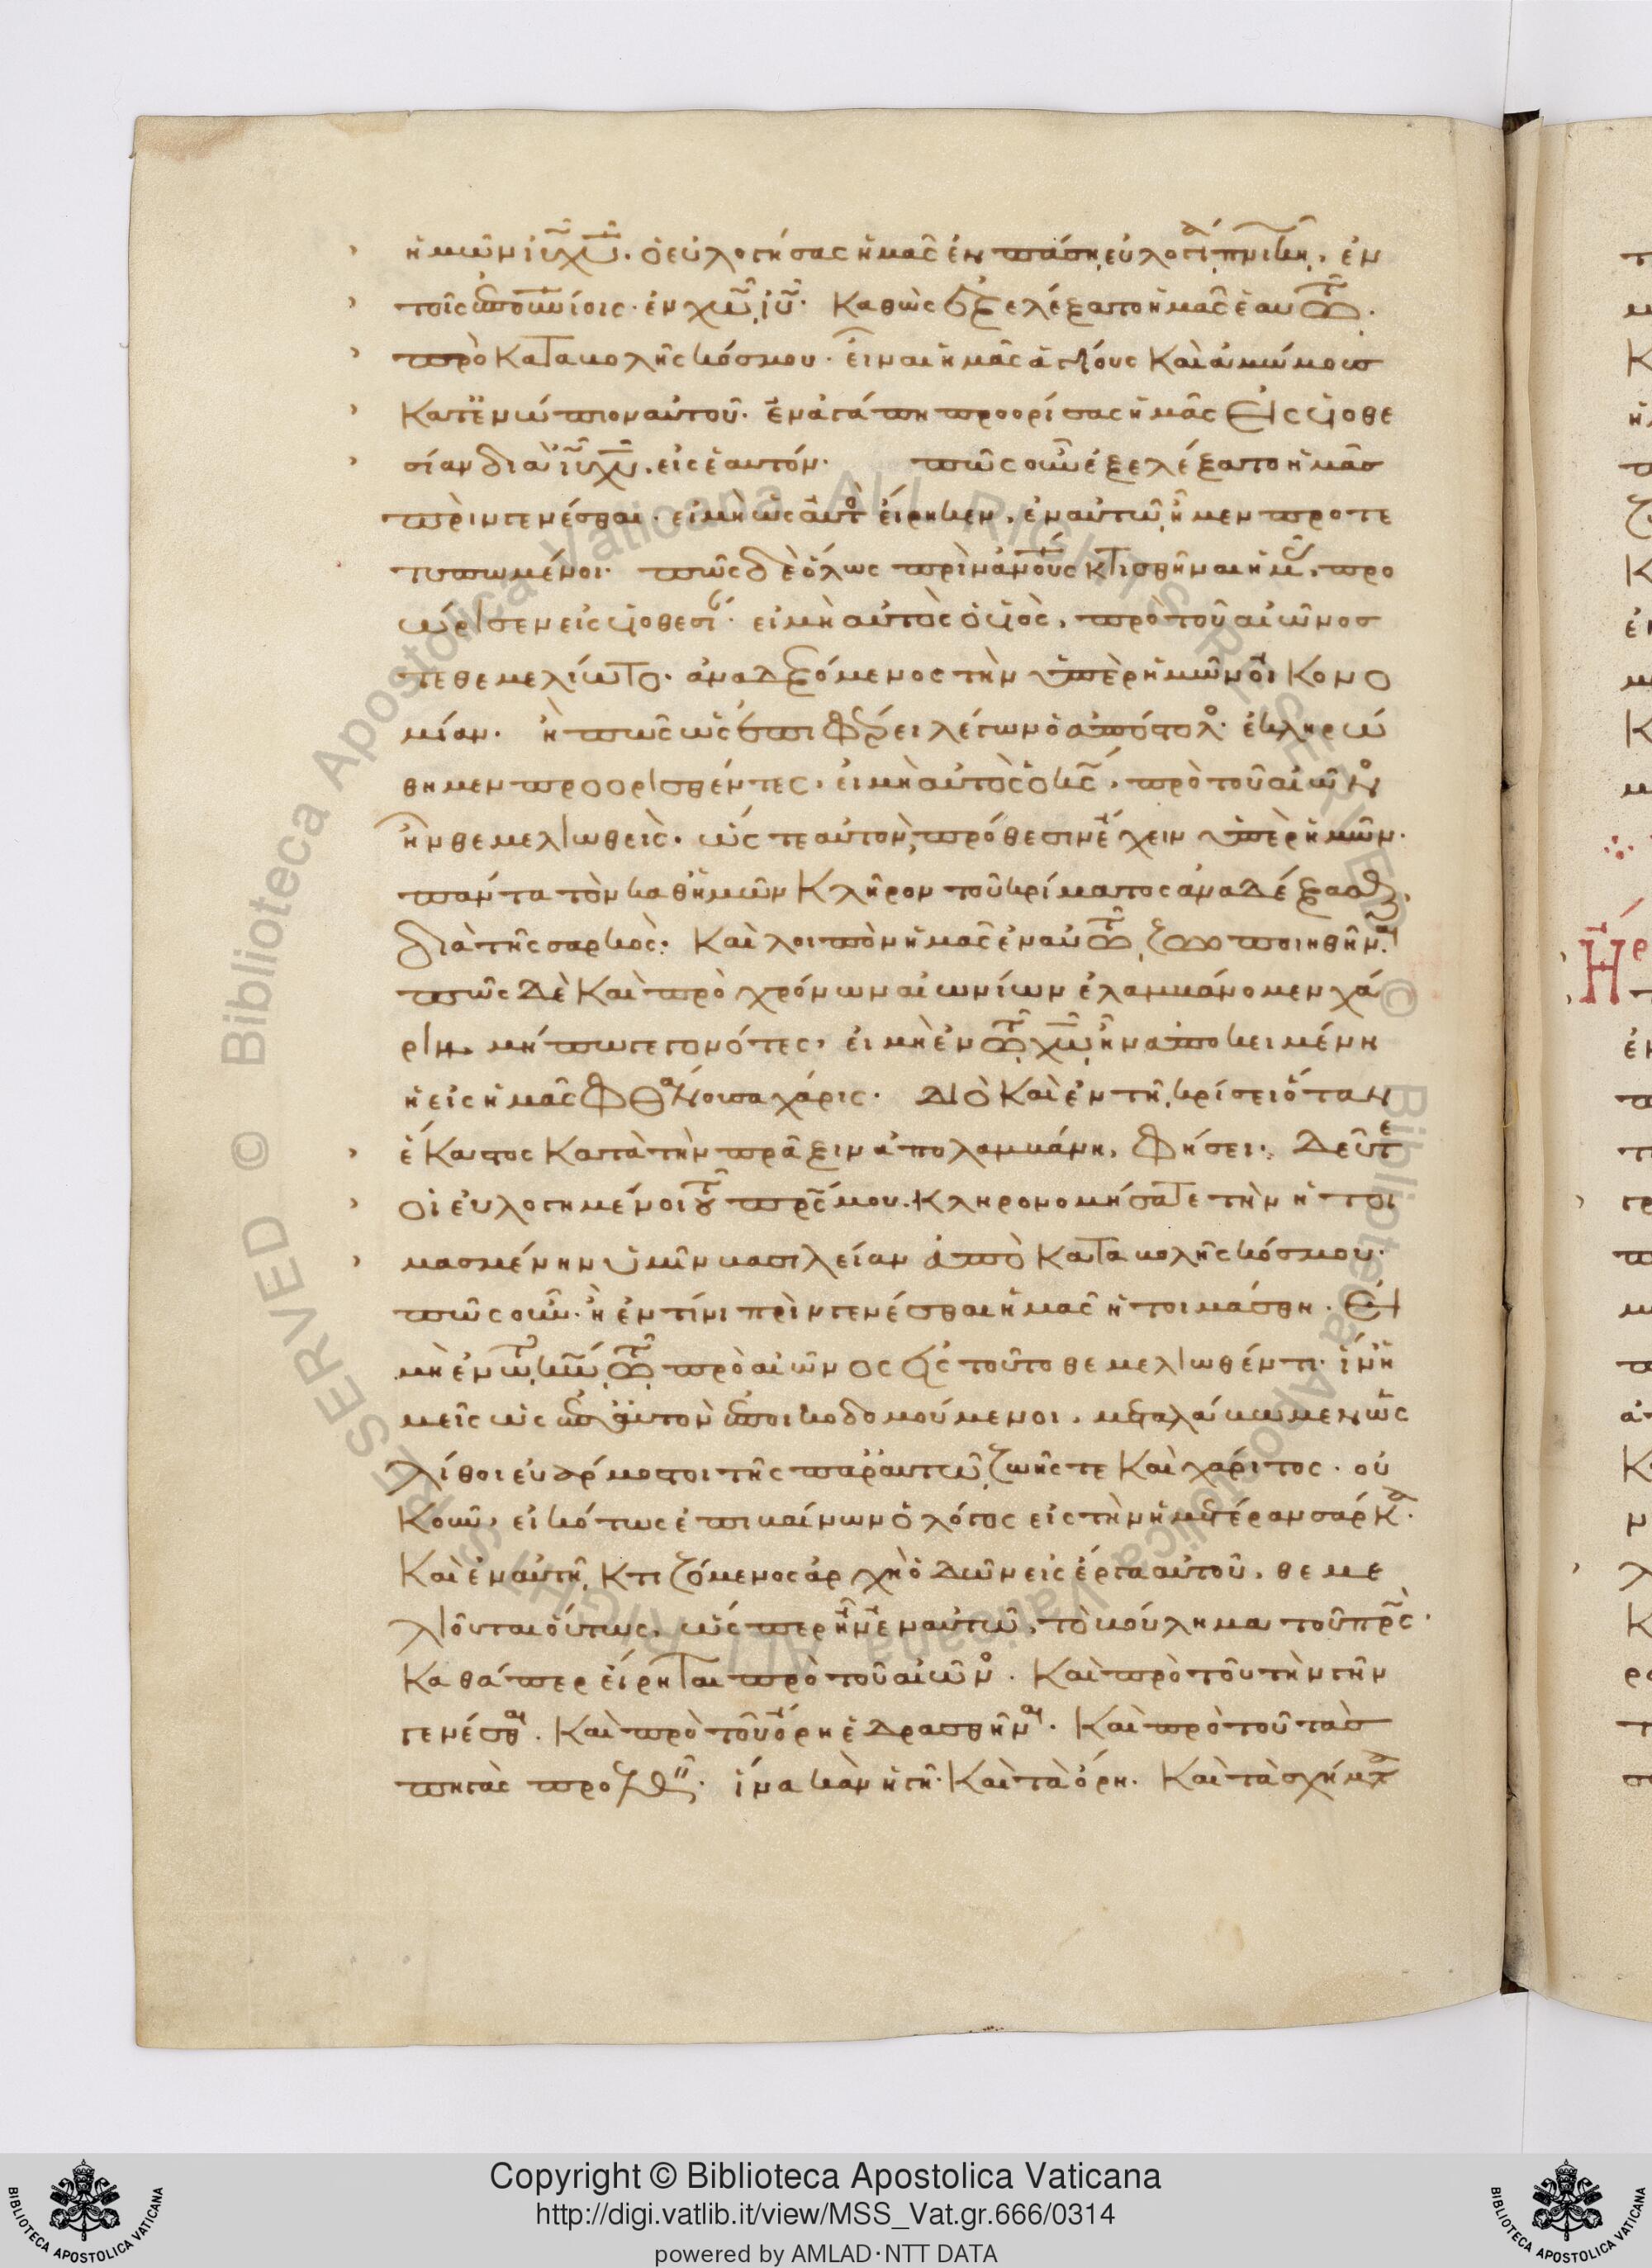 ἡμῶν ἰῦ χῦ. ὁ εὐλογήσας ἡμᾶς ἐν πάσῃ εὐλογίᾳ πνικῇ, ἐν
τοῖς ἐπουνίοις ἐν χῶ ἰῦ. καθὼς ἐξελέξατο ἡμᾶς ἐαυτῶ.
πρὸ καταβολῆς κόσμου. εἶναι ἡμᾶς ἁγίους καὶ ἀμώμους
κατενώπιον αὐτοῦ. ἐν ἀγάπη προορίσας ἡμᾶς εἰς υἱοθε
σίαν διὰ ἰῦ χῦ. εἰς ἑαυτόν. πῶς οὖν ἐξελέξατο ἡμᾶς
πρὶν γενέσθαι. εἰ μὴ ὡς αὐτὸς εἴρηκεν, ἐν αὐτῶ ἦμεν προτε
τυπωμένοι. πῶς δὲ ὅλως πρὶν ἀνους κτισθῆναι ἡμᾶς, προ
ώρισεν εἰς υἱοθεσίαν. εἰ μὴ αὐτὸς ὁ υἱὸς, πρὸ τοῦ αἰῶνος
τεθεμελίωτο. ἀναδεξόμενος τὴν ὑπὲρ ἡμῶν οἰκονο
μίαν. ἢ πῶς ὡς ἐπιφέρει λέγων ὁ ἀπόστολος ἐκληρώ
θημεν προορισθέντες, εἰ μὴ αὐτὸς ὁ κς, πρὸ τοῦ αἰῶνος
ἦν θεμελιωθεὶς. ὥς τε αὐτὸν, πρόθεσιν ἔχειν ὑπὲρ ἡμῶν.
πάντα τὸν καθ ἡμῶν κλῆρον τοῦ κρίματος ἀναδέξασθαι,
διὰ τῆς σαρκὸς. καὶ λοιπὸν ἡμᾶς ἐν αὐτῶ ζωοποιηθῆναι
πῶς δὲ καὶ πρὸ χρόνων αἰωνίων ἐλαμβάνομεν χά
ριν. μήπω γεγονότες, εἰ μὴ ἐν τῶ χῶ ἦν ἀποκειμένη
ἡ εἰς ἡμᾶς φθάνουσα χάρις. διὸ καὶ ἐν τῆ κρίσει ὅταν
ἕκαστος κατὰ τὴν πρᾶξιν ἀπολαμβάνη, φήσει. δεῦτε
οἱ εὐλογημένοι τοῦ πρς μου. κληρονομήσατε τὴν ἡτοι
μασμένην ὑμῖν βασιλείαν ἀπὸ καταβολῆς κόσμου.
πῶς οὖν. ἢ ἐν τίνι πρὶν γενέσθαι ἡμᾶς ἡτοιμάσθη. εἰ
μὴ ἐν τῶ κω τῶ πρὸ αἰῶνος εἰς τοῦτο θεμελιωθέντι. ἵν ἡ
μεῖς ὡς ἐπ αὐτὸν ἐποικοδομούμενοι. μεταλάβωμεν ὡς
λίθοι εὐάρμοστοι τῆς παρ αὐτῶ ζωῆς τε καὶ χάριτος. οὐ
κοῦν, εἰκότως ἐπιβαίνων ὁ λόγος εἰς τὴν ἡμετέραν σάρκα.
καὶ ἐν αὐτῆ κτιζόμενος ἀρχὴ ὁδῶν εἰς ἔργα αὐτοῦ, θεμε
λιοῦται οὕτως. ὥς περ ἦν ἐν αὐτῶ, τὸ βούλημα τοῦ πρς.
καθάπερ εἴρηται πρὸ τοῦ αἰῶνος. καὶ πρὸ τοῦ τὴν γῆν
γενέσθαι. καὶ πρὸ τοῦ ὄρη ἑδρασθῆναι. καὶ πρὸ τοῦ τὰς
πηγὰς προελθεῖν. ἵνα κἂν ἡ γῆ. καὶ τὰ ὄρη. καὶ τὰ σχήματα
Copyright © Biblioteca Apostolica Vaticana
http://digi.vatlib.it/view/MSS_Vat.gr.666/0314
powered by AMLAD·NTT DATA